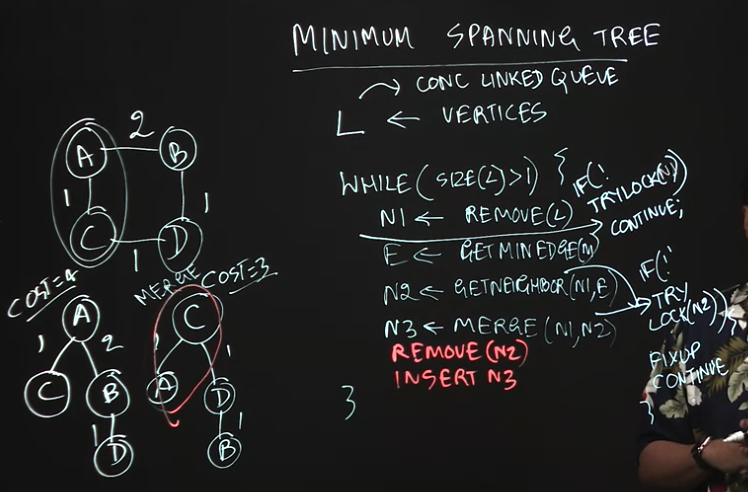 MINIMUM SPANNING TREE
CONC LINKED QUEUE
L ← VERTICES
WHILE (SIZE(L)>1) {
IF(!
TRYLOCK(N1))
CONTINUE;
N1 ← REMOVE(L)
E ← GETMINEDGE(N1)
N2 ← GETNEIGHBOR(N1,E)
IF(!
TRY
LOCK(N2)) {
FIXUP
CONTINUE
}
N3 ← MERGE(N1,N2)
REMOVE(N2)
INSERT N3
}
A 2 B
1 1
C 1 D
COST=4
A
1 2
C B
1
D
MERGE COST=3
C
1 1
A D
1
B